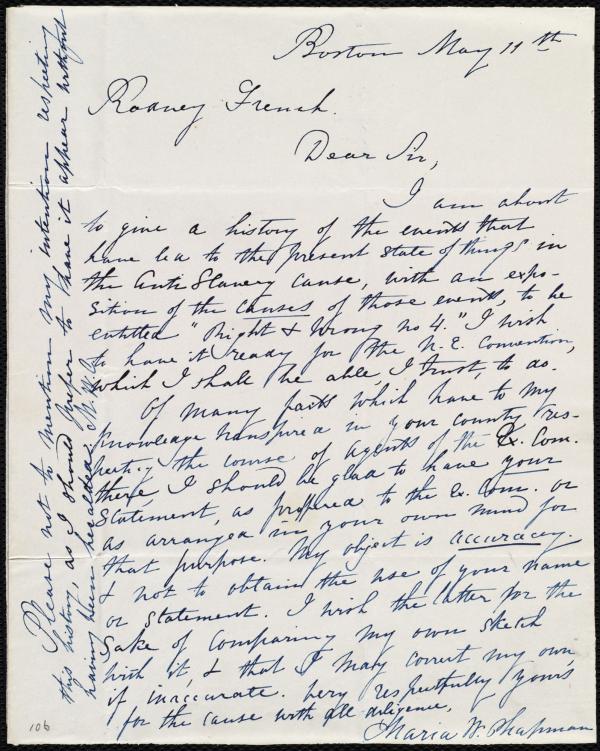 Boston May 11th
Rodney French.
Dear Sir,
I am about
to give a history of the events that
have led to the present state of things in
the Anti Slavery cause, with an expo-
sition of the causes of those events, to be
entitled "Right & Wrong no 4." I wish
to have it ready for the N. E. Convention,
which I shall be able, I trust, to do.
Of many facts which have to my
knowledge transpired in your country res-
pecting the course of agents of the Ex. Com.
there, I should be glad to have your
statement, as proffered to the Ex. Com. or
as arranged in your own mind for
that purpose. My object is accuracy.
& not to obtain the use of your name
or statement. I wish the latter for the
sake of comparing my own sketch
with it, & that I may correct my own
if inaccurate. Very respectfully yours
for the cause with all diligence,
Maria W. Chapman
Please not to mention my intention respecting
this history, as I should prefer to have it appear without
having been heralded. M.W.C.
106